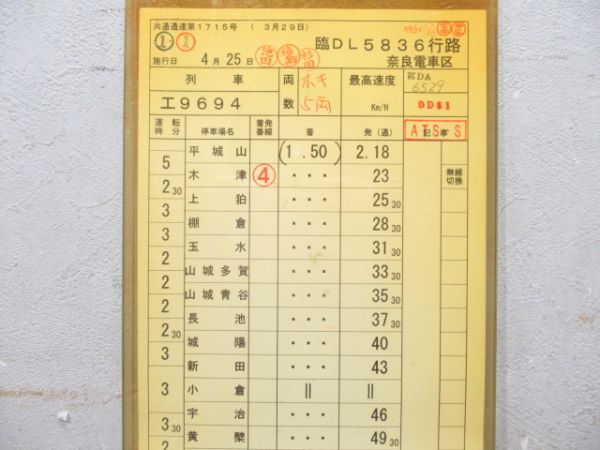 共通通達第1715号 ( 3月29日)
① ①
施行日 4月25日
臨DL5836行路
奈良電車区
列車 両数 ホキ 5両 最高速度 Km/H 宮DA 6529
工9694 DD51
運転時分 停車場名 着発番線 着 発(通) 記事 ATS-S
平城山 (1.50) 2.18
5
木津 ④ ・・・ 23 無線切換
2 30
上狛 ・・・ 25 30
3
棚倉 ・・・ 28 30
3
玉水 ・・・ 31 30
2
山城多賀 ・・・ 33 30
2
山城青谷 ・・・ 35 30
2
長池 ・・・ 37 30
2 30
城陽 ・・・ 40
3
新田 ・・・ 43
小倉 || ||
3
宇治 ・・・ 46
3 30
黄檗 ・・・ 49 30